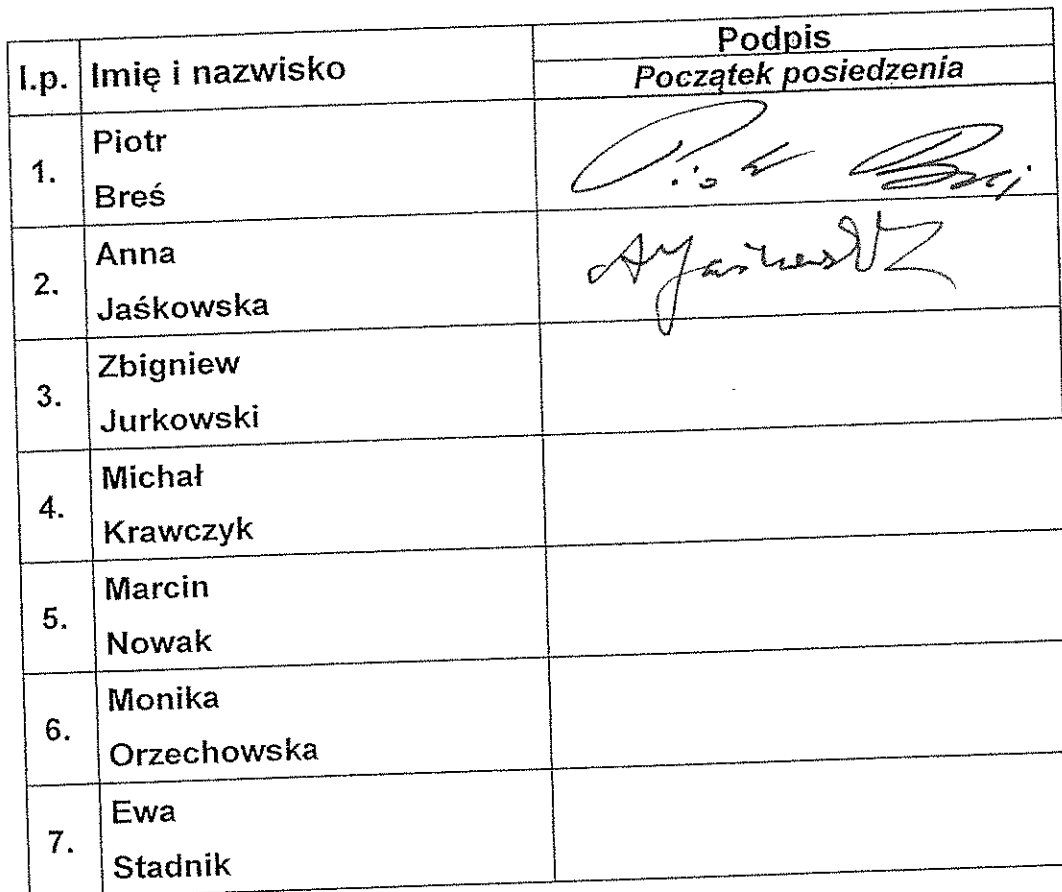 l.p. Imię i nazwisko Podpis
Początek posiedzenia
1. Piotr
Breś
Piotr Breś
2. Anna
Jaśkowska
AJaśkowska
3. Zbigniew
Jurkowski
4. Michał
Krawczyk
5. Marcin
Nowak
6. Monika
Orzechowska
7. Ewa
Stadnik